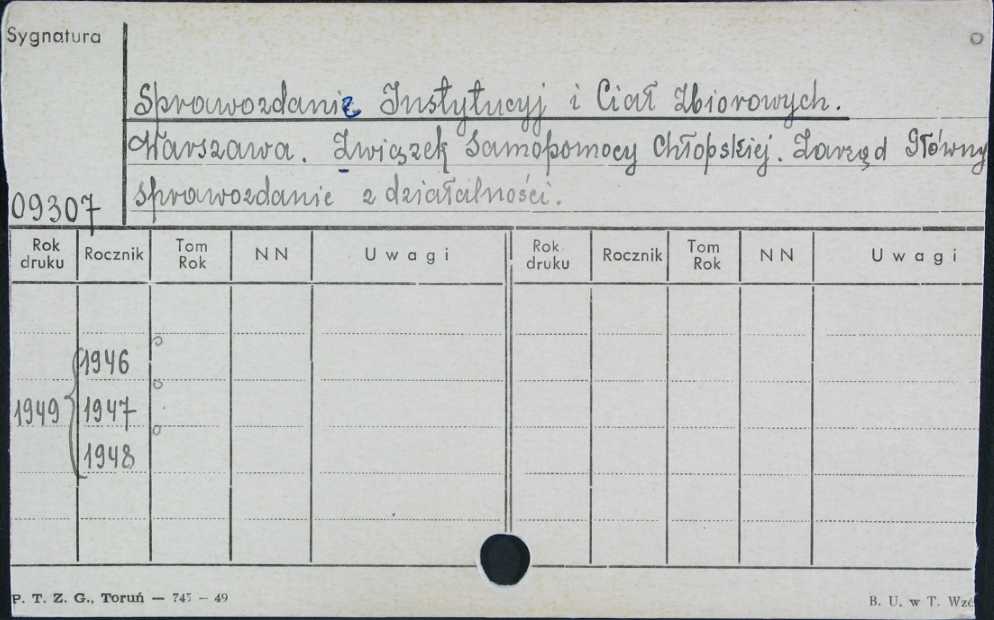 Sygnatura
Sprawozdanie Instytucyj i Ciał Zbiorowych.
Warszawa. Związek Samopomocy Chłopskiej. Zarząd Główny
sprawozdanie z działalności.
09307
Rok druku Rocznik Tom Rok NN Uwagi Rok druku Rocznik Tom Rok NN Uwagi
1946
1949 1947
1948
P. T. Z. G., Toruń — 745 — 49
B. U. w T. Wzó